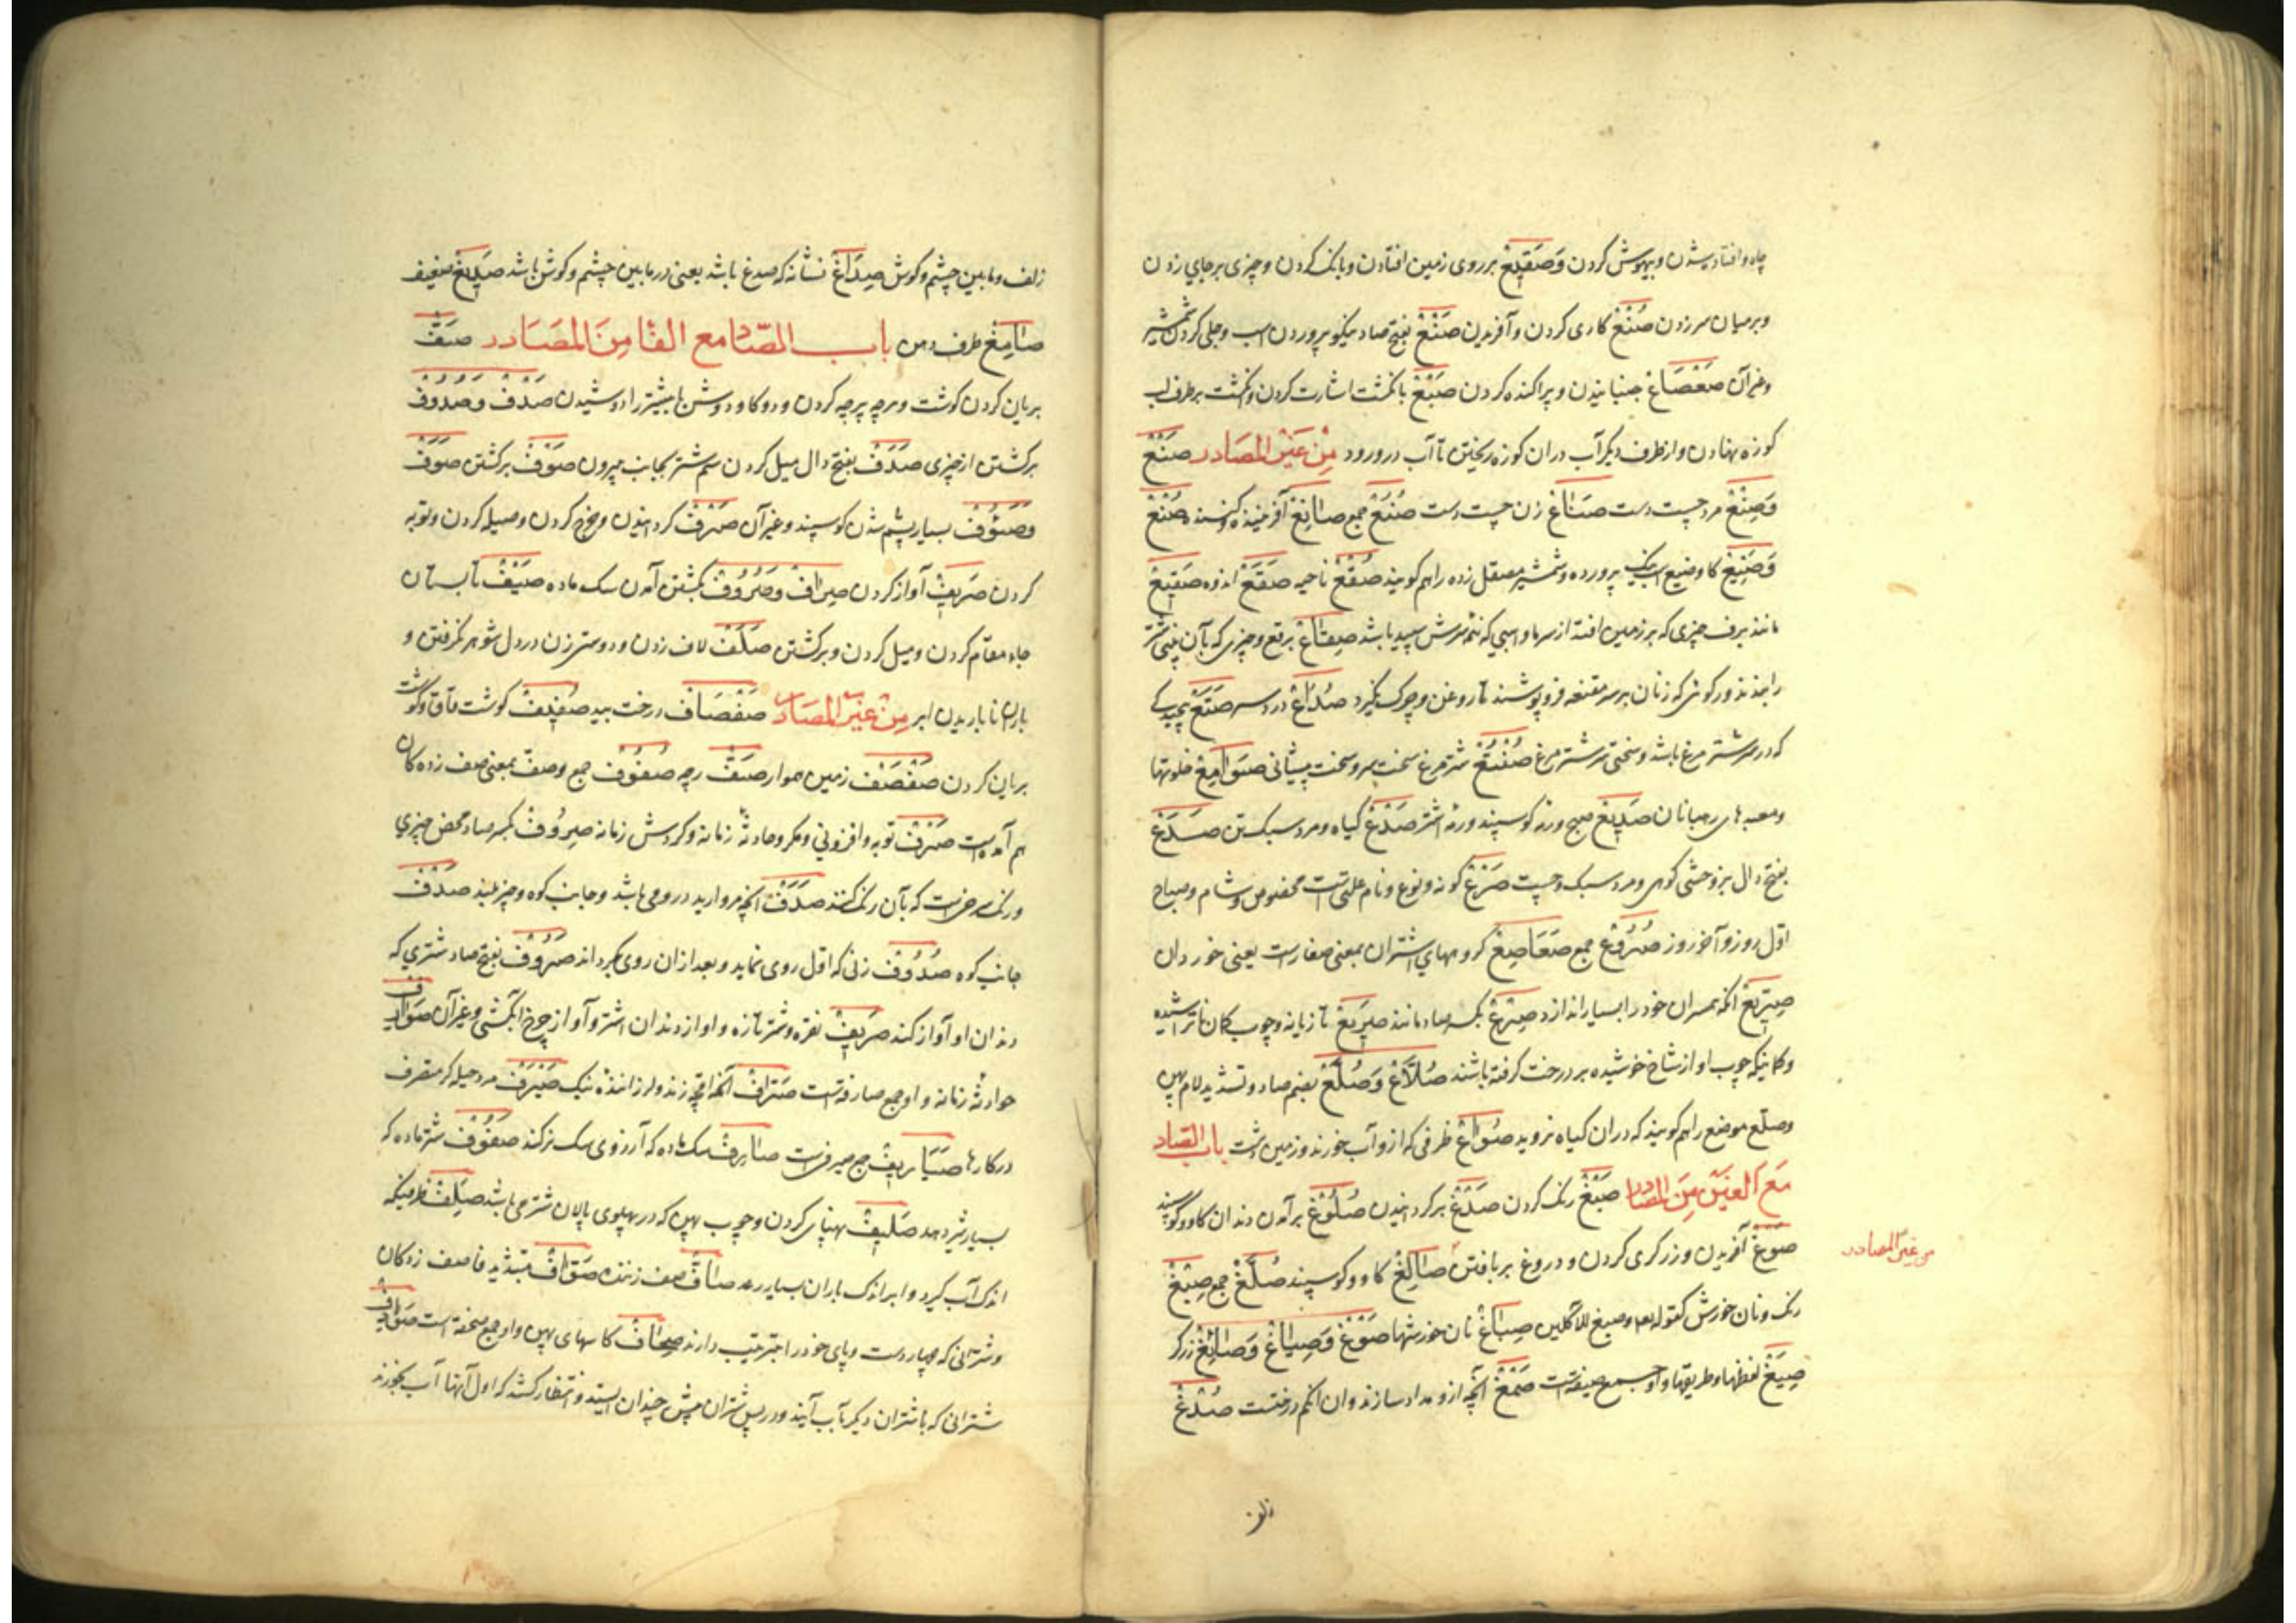 چاه وافتادیشدن وبیهوش کردن وَصَقیع برروی زمین افتادن وبانک کردن وچیزی برجایی زدن
وبرمیان سرزدن صُنْع کاری کردن وآفریدن صَنْع بفتح صاد نیکو پروردن اسب وجلی کردن شمشیر
وغیرآن صَعْصَاع جنبانیدن وپراکنده کردن صَبْع بانکشت اشارت کردن وانکشت برطرف لب
کوزه نهادن وازطرف دیکر آب دران کوزه ریختن تا آب درورود مِنْ غَیْرِ المصَادر صَنْع
وَصِنْع مرد چست دست صَنَاع زن چست دست صُنُع جمع صَانِع آفریننده وکننده صُنْع
وَصَنِیع کار وضیع اسب نیک پرورده وشمشیر مصقل زده راهم کویند صُقْع ناحیه صَقَع اندوه صَقِیع
مانند برف چیزی که برزمین افتد از سرما واسبی که تمام سرش سپید باشد صِقَاع برقع وچیزی که بآن بینی شتر
رابندند ورکوئی که زنان برسرمقنعه فروپوشند تا روغن وچرک نکیرد صُدَاع دردسر صَتَع پیچیدکی
که درسر شتر مرغ باشد وسختی سر شتر مرغ صُنْتُع شتر مرغ سخت سر وسخت پیشانی صَوَامِع خلوتها
ومعبدهای رهبانان صَدِیع صبح ورمه کوسپند ورمه اشتر صَدْع کیاه ومرد سبک تن صَدَع
بفتح دال بزوحشی کوهی ومرد سبک وچست صَرْع کونه ونوع ونام علتی است مخصوص وشام وصباح
اول روز وآخر روز صُرُوع جمع صَعَاصِع کروههای اشتران بمعنی صفارست یعنی خوردان
صِرِّیع آنکه همسران خودرا بسیار اندازد صِرْع بکسر صاد مانند صَرِیع تازیانه وچوب کمان ناتراشیده
وکمانیکه چوب او از شاخ خوشیده بردرخت کرفته باشند صُلَّاع وَصُلَّع بضم صاد وتشدید لام سنک پهن
وصلع موضع راهم کویند که دران کیاه نروید صُوَاع ظرفی که ازو آب خورند وزمین پشت باب الصّاد
مَعَ الغین مِنَ المصَادر صَبْغ رنک کردن صَدْغ برکردانیدن صُلُوغ برآمدن دندان کاو وکوسپند
صَوغ آفریدن وزرکری کردن ودروغ بربافتن صَالِغ کاو وکوسپند صُلَّغ جمع صِبْغ
من غیر المصادر
رنک ونان خورش کقوله تعه وصبغ للآکلین صِبَاغ نان خورشها صَوَّغ وَصِیَاغ وَصَائِغ زرکر
صِیَغ لفظها وطریقها واو جمع صیغه است صَمْغ آنچه ازو مداد سازند وان انکم درختست صُدْغ
زلف
زلف ومابین چشم وکوش صِدَاغ نشانه که صدغ باشد یعنی درمابین چشم وکوش باشد صَدِیغ ضعیف
صَامِغ طرف دهن باب الصّاد مع الفا مِنَ المصَادر صَفّ
بریان کردن کوشت وپرچه پرچه کردن ودوکاو دوش یا بیشتر رادوشیدن صَدْف وَصُدُوف
برکشتن از چیزی صَدَف بفتح دال میل کردن سم شتر بجانب بیرون صَوْف برکشتن صَوَف
وَصُئُوف بسیارپشم شدن کوسپند وغیرآن صَرْف کردانیدن وخرج کردن وحیله کردن وتوبه
کردن صَرِیف آواز کردن صِرَاف وَصُرُوف بکشتن آمدن سک ماده صَیْف تابستان
جای مقام کردن ومیل کردن وبرکشتن صَلَف لاف زدن ودوستی زن دردل شوهر نکرفتن و
باران نا باریدن ابر مِنْ غَیْرِ المصَادر صَفْصَاف درخت بید صَفِیف کوشت قاق وکوشت
بریان کردن صَفْصَف زمین هموار صَفّ رچه صُفُوف جمع وصف بمعنی صف زده کان
هم آمده است صَرْف توبه وافزونی ومکر وحادثه زمانه وکردش زمانه صِرُوف بکسر صاد محض چیزی
ورنک سرخی است که بآن رنک کنند صَدَف آنچه مروارید درو می باشد وجانب کوه وچیز بلند صُدُف
جانب کوه صُدُوف زنی که اول روی نماید وبعد ازان روی بکرداند صَرُوف بفتح صاد شتری که
دندان او آواز کند صَرِیف نقره وشیر تازه واواز دندان اشتر وآواز چرخ ابکشی وغیرآن صَوَارِف
حوادثه زمانه واو جمع صارفه است صَرَّاف آنکه اقچه زند ولرزاننده نیک صَیْرَف مرد حیله کر متصرف
درکارها صَیَارِیف جمع صیرفیست صَارِف سک ماده که آرزوی سک نر کند صَفُوف شتر ماده که
بسیارشیر دهد صَلِیف پهنای کردن وچوب پهن که در پهلوی پالان شتر می باشد صَلِف ظرفیکه
اندک آب کیرد وابر اندک باران بسیار رعد صَافّ صف زننده صَوَافّ بتشدید فا صف زدکان
وشترانی که چهار دست وپای خودرا بترتیب دارند صِحَاف کاسهای پهن واو جمع صحفه است صَوَادِف
شترانی که باشتران دیکر بآب آیند ودرپس شتران پیش چندان ایستند وانتظار کشند که اول آنها آب بخورند